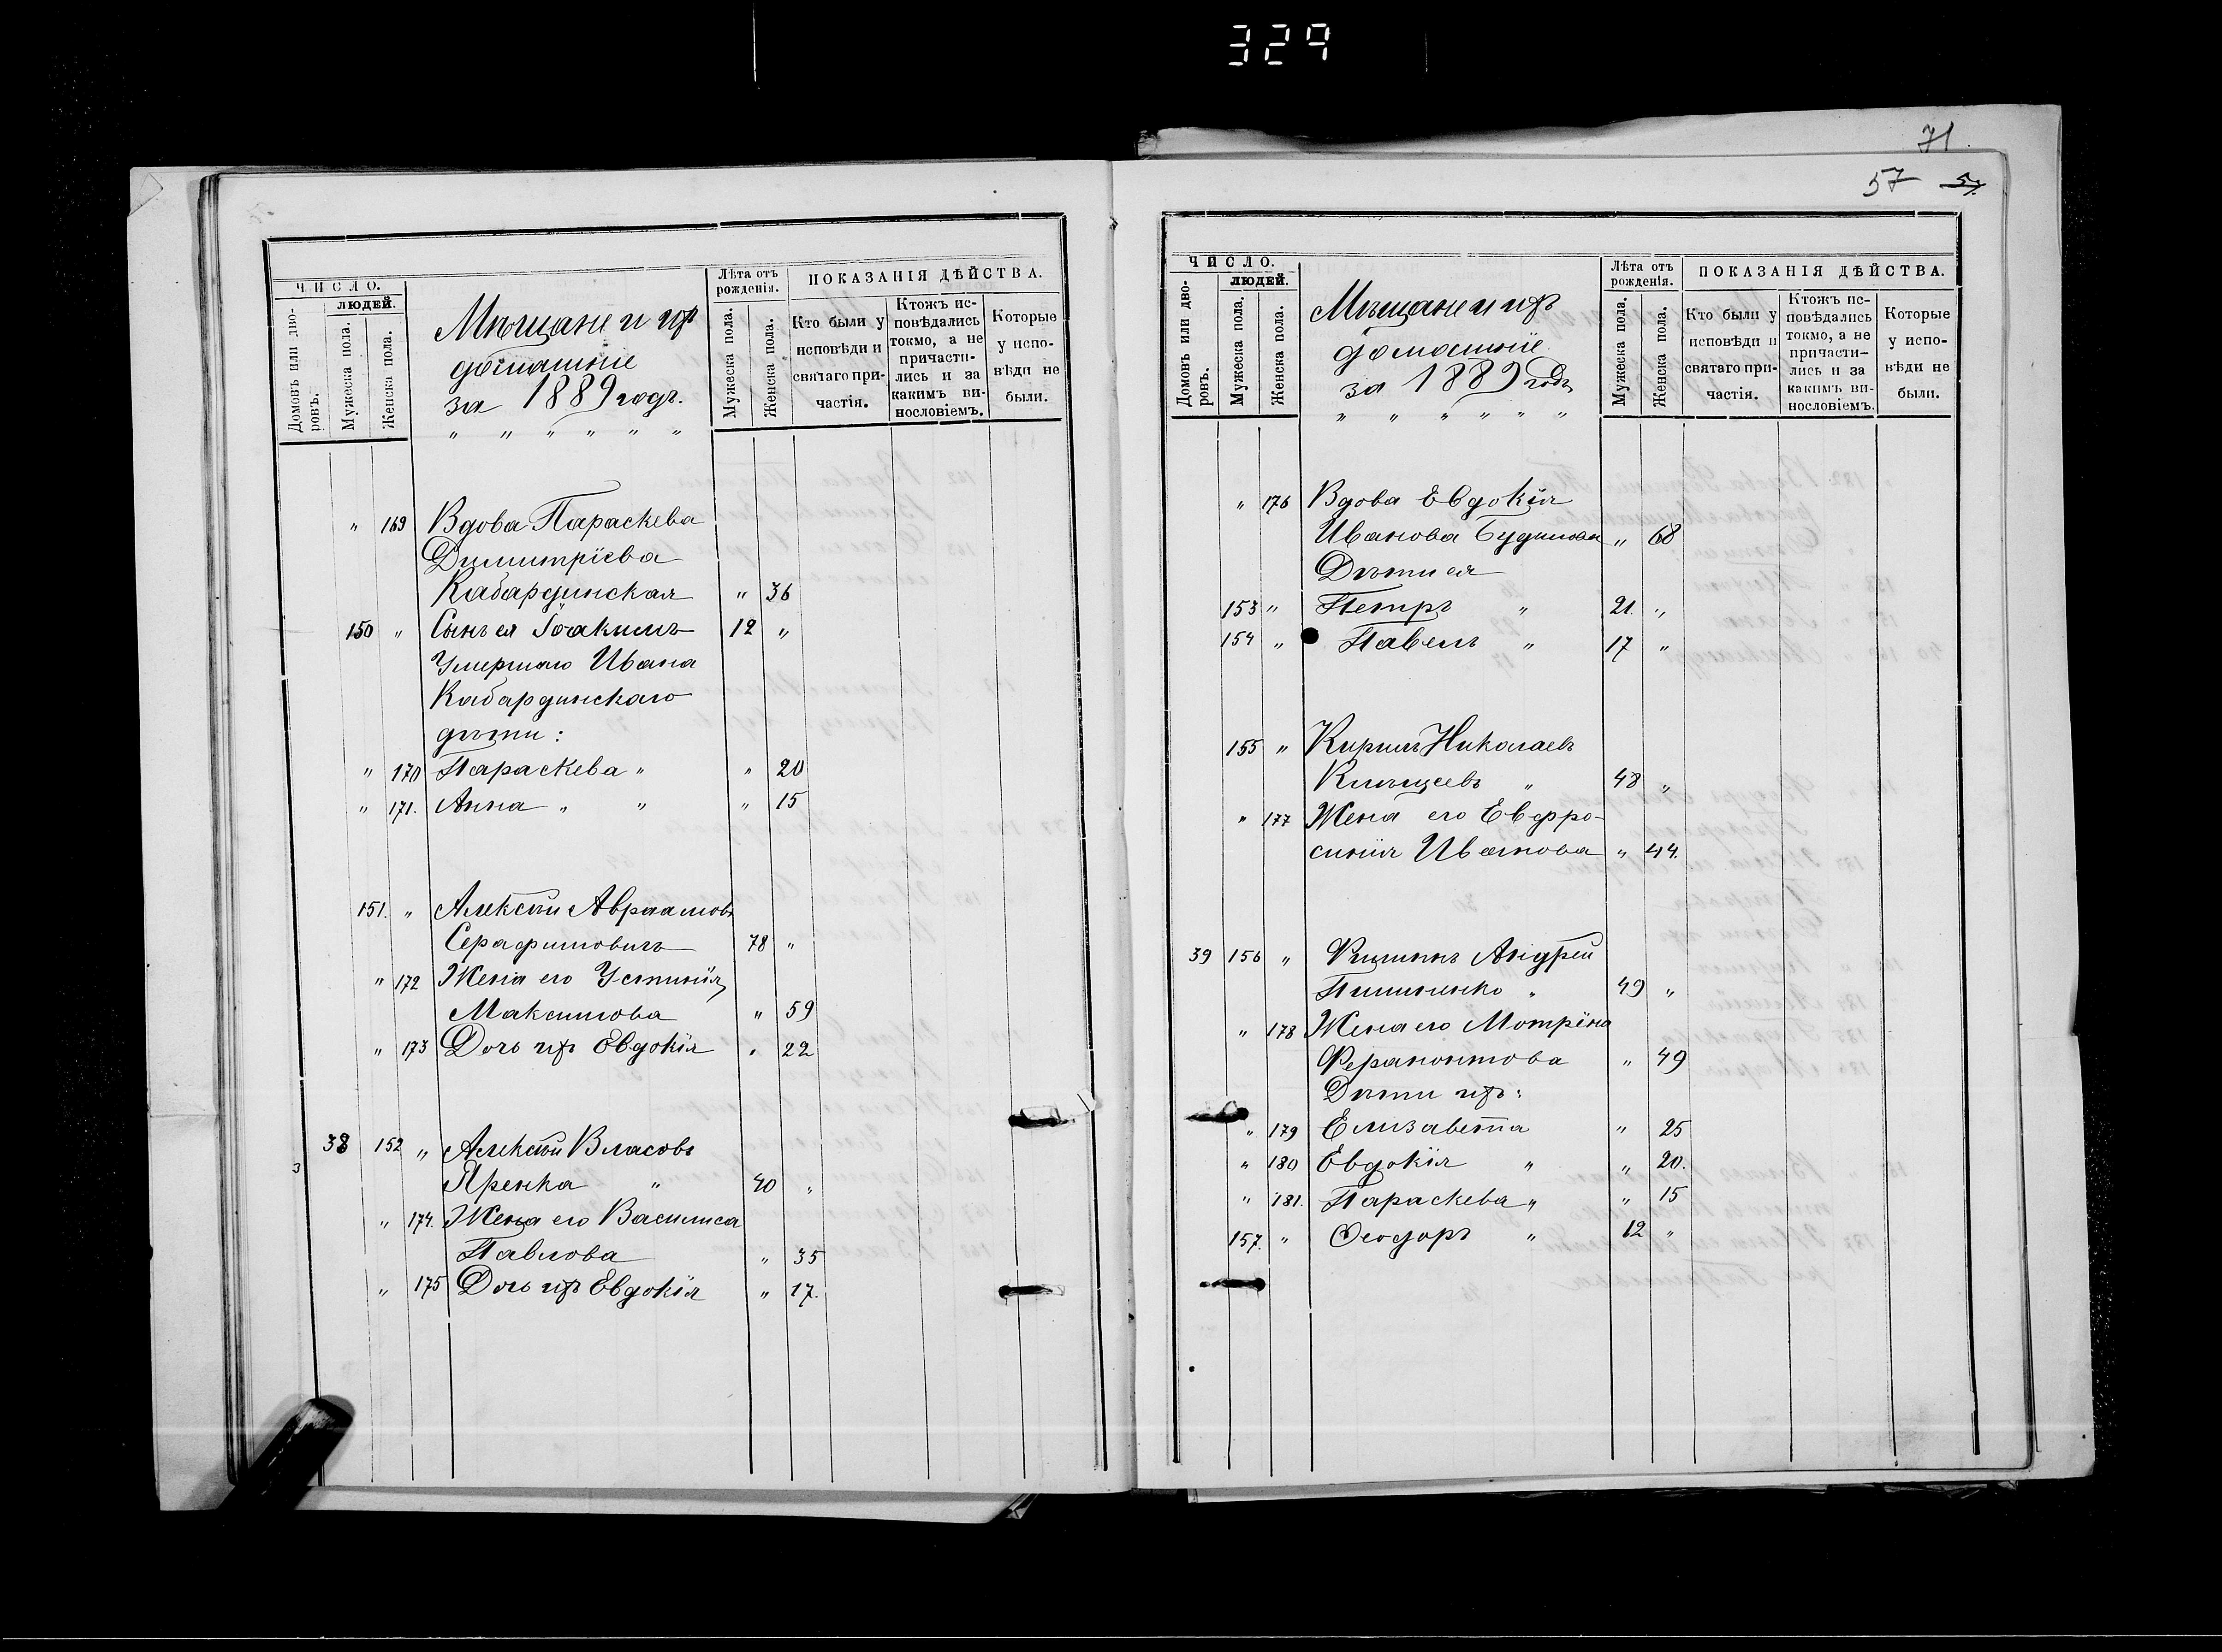 329
71
57 57.
ЧИСЛО.
ЛЮДЕЙ.
Домовъ или дво-
ровъ.
Мужеска пола.
Женска пола.
Мѣщане и ихъ
домашніе
за 1889 годъ.
" " " " " "
Лѣта отъ
рожденія.
Мужеска пола.
Женска пола.
ПОКАЗАНІЯ ДѢЙСТВА.
Кто были у
исповѣди и
святаго при-
частія.
Ктожъ ис-
повѣдались
токмо, а не
причасти-
лись и за
какимъ ви-
нословіемъ.
Которые
у испо-
вѣди не
были.
" 169 Вдова Параскева
Димитрiева
Кабардинская " 36
150 " Сынъ ея Іоакимъ 12 "
Умершаго Ивана
Кабардинскаго
дѣти:
" 170 Параскева " " 20
" 171. Анна " " " 15
151. " Алексѣй Авраамовъ
Серафимовичъ 78 "
" 172 Жена его Устинія
Максимова " 59
" 173 Дочь ихъ Евдокія " 22
38 152 " Алексѣй Власовъ
Яренка " 40 "
" 174. Жена его Василиса
Павлова " 35
" 175 Дочь ихъ Евдокія " 17.
ЧИСЛО.
ЛЮДЕЙ.
Домовъ или дво-
ровъ.
Мужеска пола.
Женска пола.
Мѣщане и ихъ
домашніе
за 1889 годъ
" " " " " "
Лѣта отъ
рожденія.
Мужеска пола.
Женска пола.
ПОКАЗАНІЯ ДѢЙСТВА.
Кто были у
исповѣди и
святаго при-
частія.
Ктожъ ис-
повѣдались
токмо, а не
причасти-
лись и за
какимъ ви-
нословіемъ.
Которые
у испо-
вѣди не
были.
" 176 Вдова Евдокія
Иванова " 68
Дѣти ея
153 " Петръ " 21. "
154 " Павелъ " 17 "
155 " Кирилъ Николаевъ
" 48 "
" 177 Жена его Евфро-
синія Иванова " 44.
39 156 " Филипъ Андрей
Пилипенко " 49 "
" 178 Жена его Мотрёна
Ферапонтова " 49
Дѣти ихъ:
" 179 Елизавета " 25
" 180 Евдокія " " 20.
" 181. Параскева " " 15
157. " Ѳеодоръ " 12 "